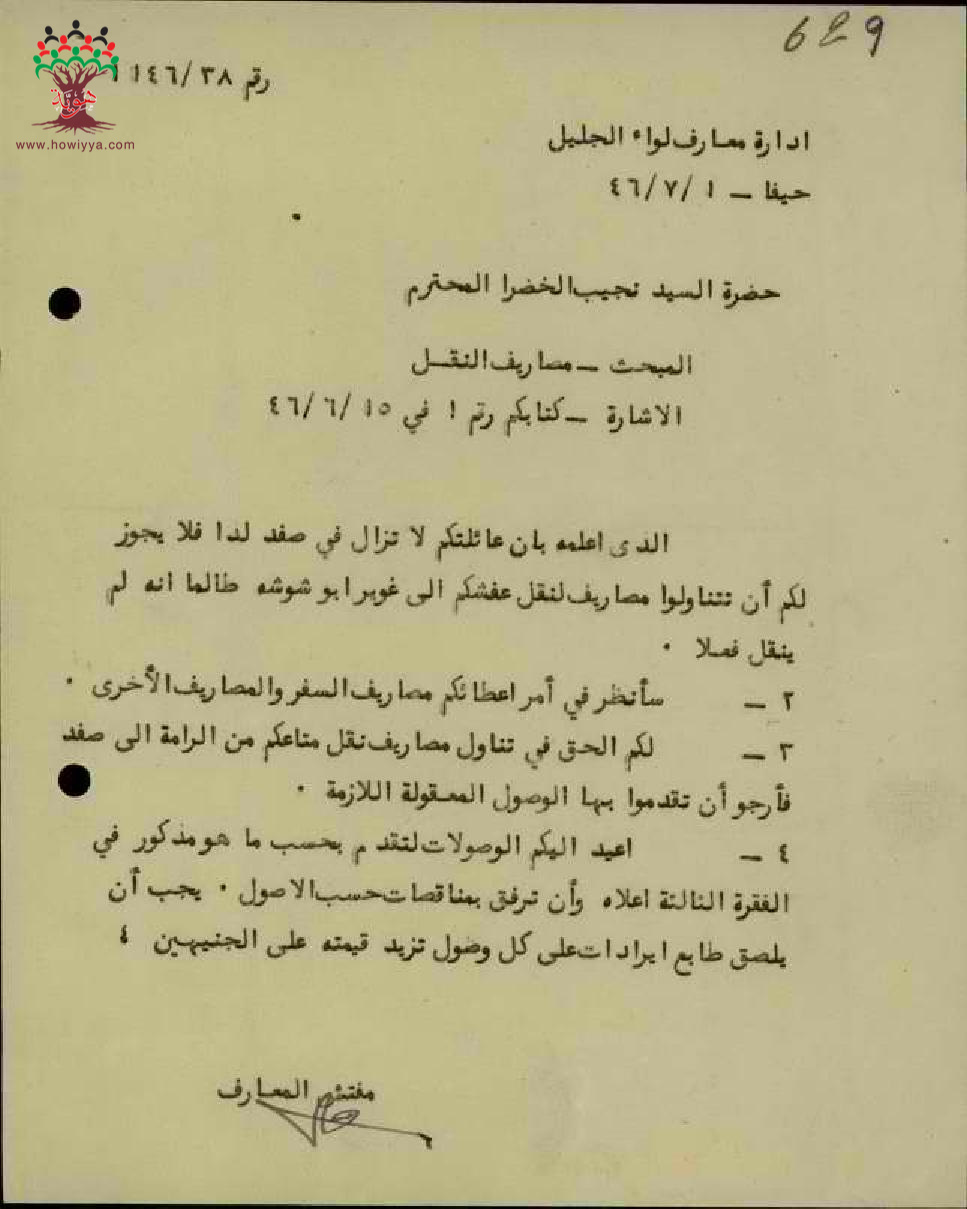 629
رقم ١١٤٦/٣٨
هوية
www.howiyya.com
ادارة معارف لواء الجليل
حيفا – ١ /٧ /٤٦
حضرة السيد نجيب الخضرا المحترم
المبحث – مصاريف النقل
الاشارة – كتابكم رقم ! في ١٥ /٦ /٤٦
الذى اعلمه بان عائلتكم لا تزال في صفد لذا فلا يجوز
لكم أن تتناولوا مصاريف لنقل عفشكم الى غوير ابو شوشه طالما انه لم
ينقل فعلا ٠
٢ – سأنظر في أمر اعطائكم مصاريف السفر والمصاريف الأخرى ٠
٣ – لكم الحق في تناول مصاريف نقل متاعكم من الرامة الى صفد
فأرجو أن تقدموا بها الوصول المعقولة اللازمة ٠
٤ – اعيد اليكم الوصولات لتقدم بحسب ما هو مذكور في
الفقرة الثالثة اعلاه وأن ترفق بمناقصات حسب الاصول ٠ يجب أن
يلصق طابع ايرادات على كل وصول تزيد قيمته على الجنيهين ٤
مفتش المعارف